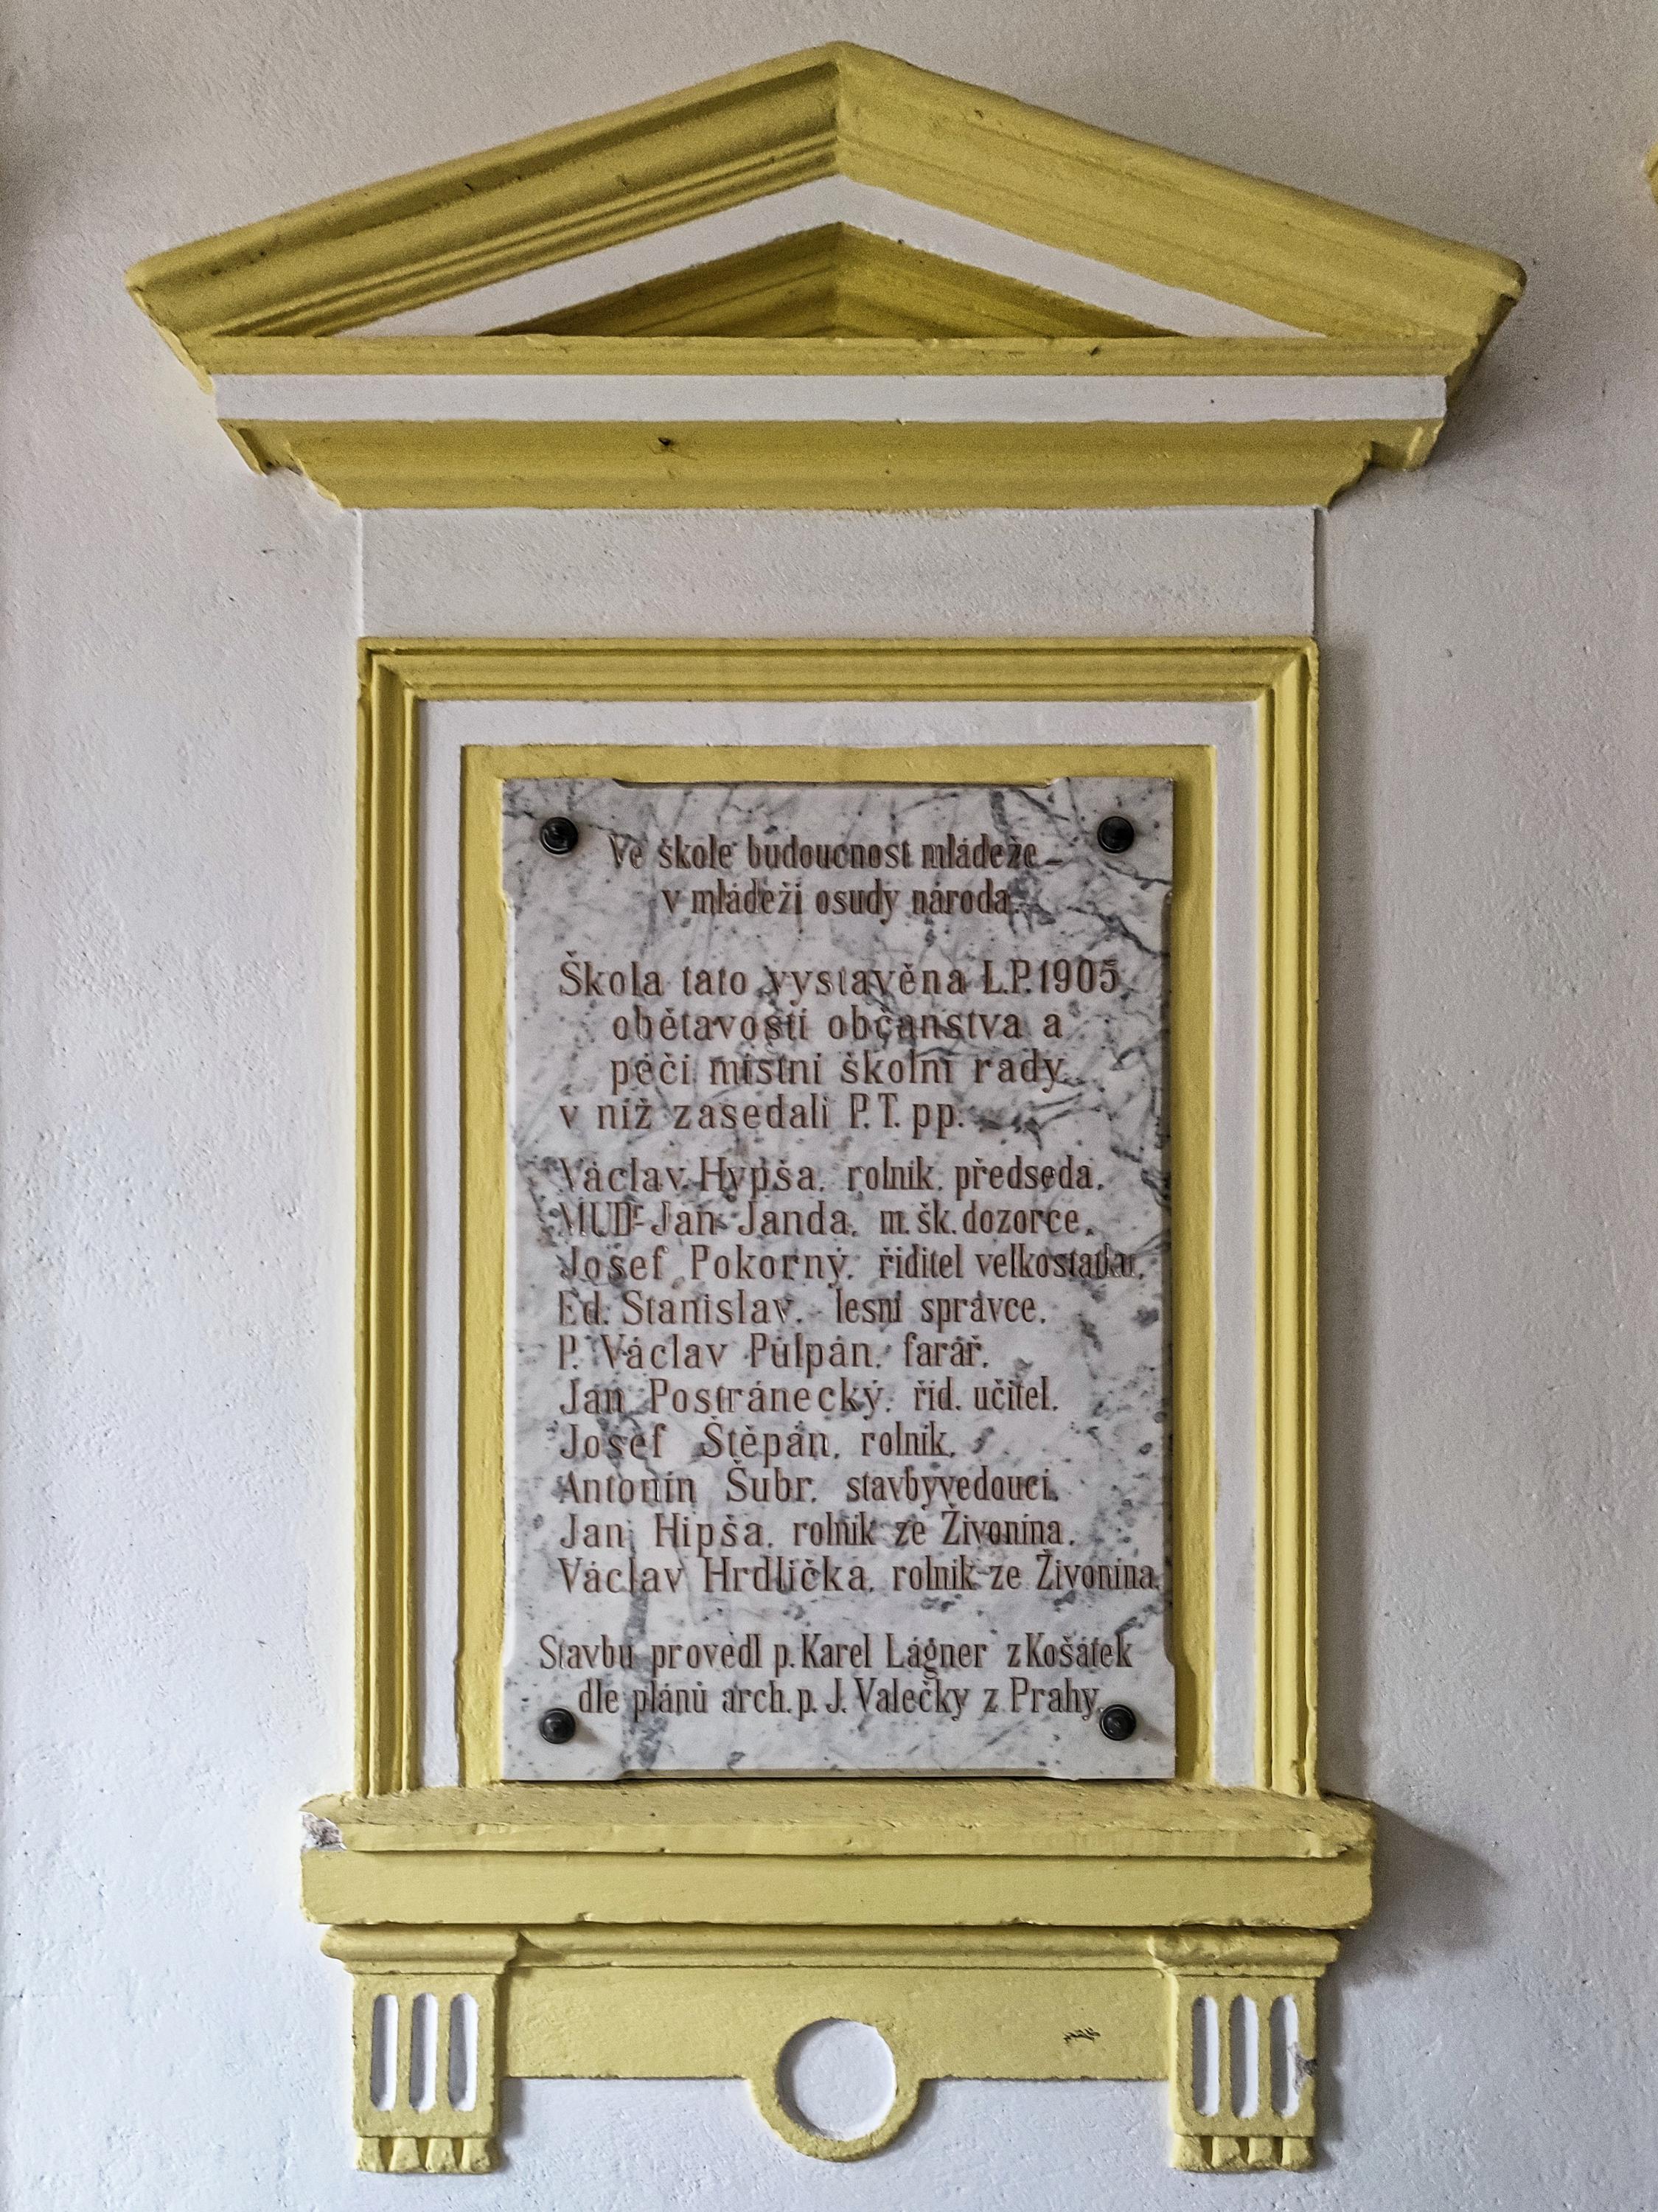 Ve škole budoucnost mládeže –
v mládeži osudy národa.
Škola tato vystavěna L.P. 1905
obětavostí občanstva a
péčí místní školní rady
v níž zasedali P.T. pp.
Václav Hypša, rolník, předseda,
MUDr Jan Janda, m. šk. dozorce,
Josef Pokorný, řiditel velkostatku,
Ed. Stanislav, lesní správce,
P. Václav Půlpán, farář,
Jan Postránecký, říd. učitel,
Josef Štěpán, rolník,
Antonín Šubr, stavbyvedoucí,
Jan Hipša, rolník ze Živonína,
Václav Hrdlička, rolník ze Živonína.
Stavbu provedl p. Karel Lágner z Košátek
dle plánů arch. p. J. Valečky z Prahy.